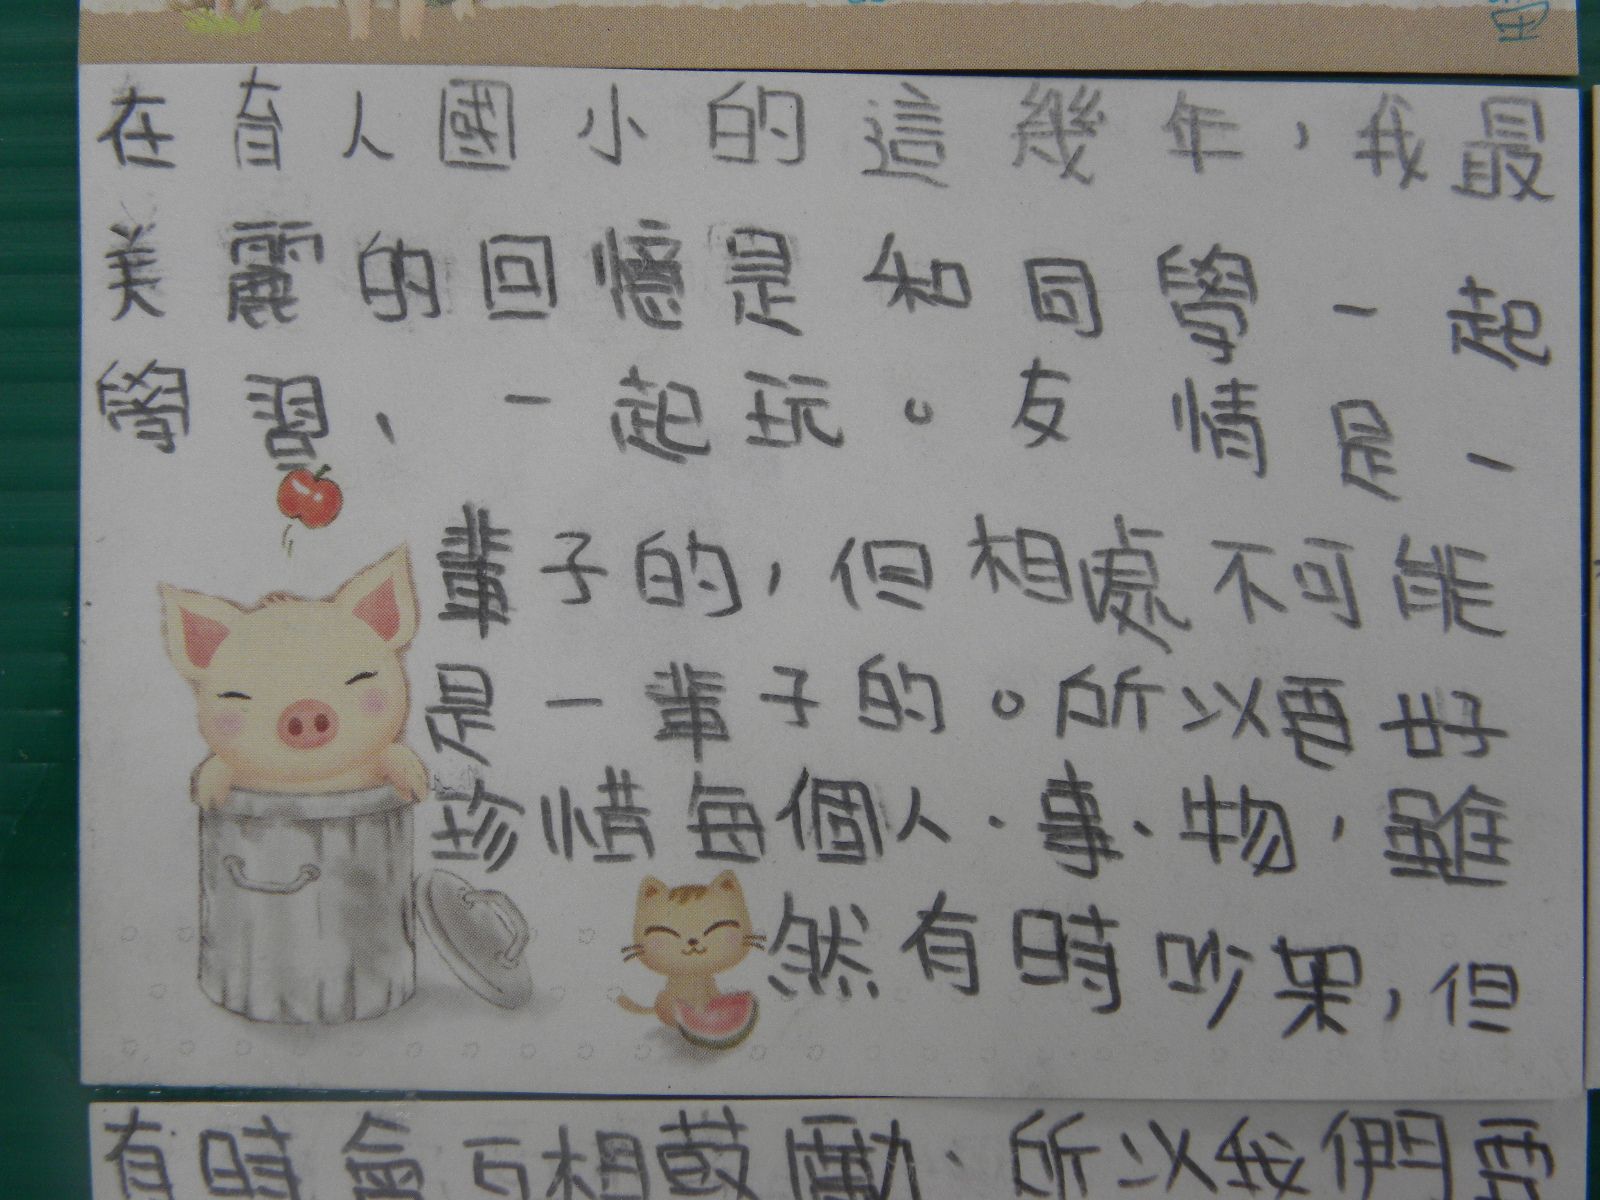 在育人國小的這幾年，我最
美麗的回憶是和同學一起
學習、一起玩。友情是一
輩子的，但相處不可能
是一輩子的。所以要好
珍惜每個人、事、物，雖
然有時吵架，但
有時會互相鼓勵、所以我們要